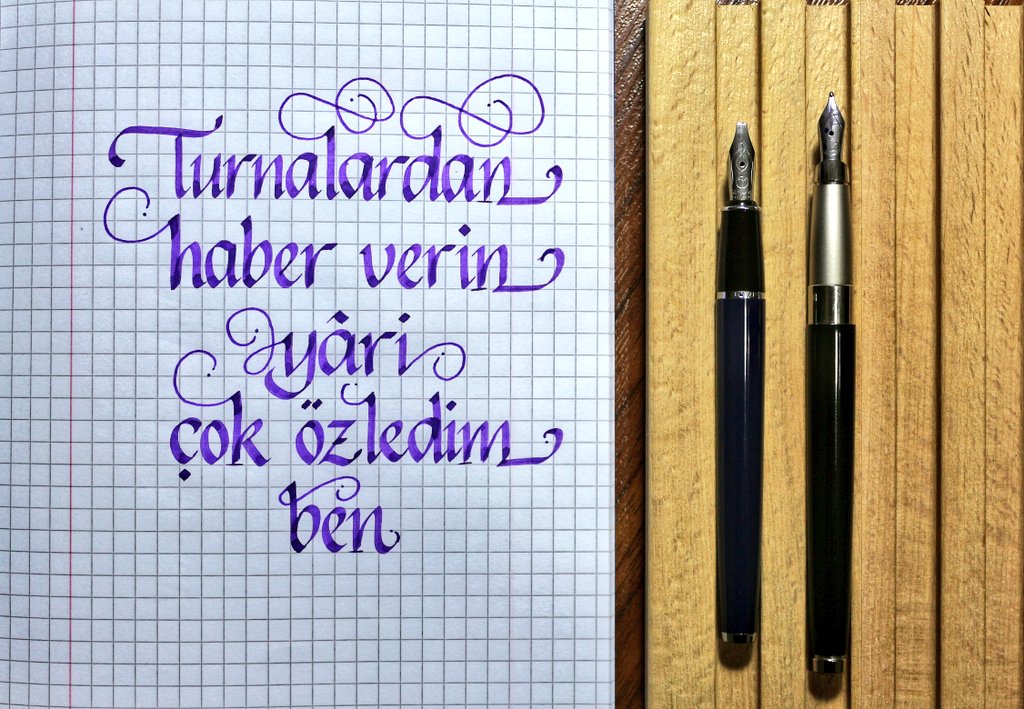 Turnalardan
haber verin
yâri
çok özledim
ben